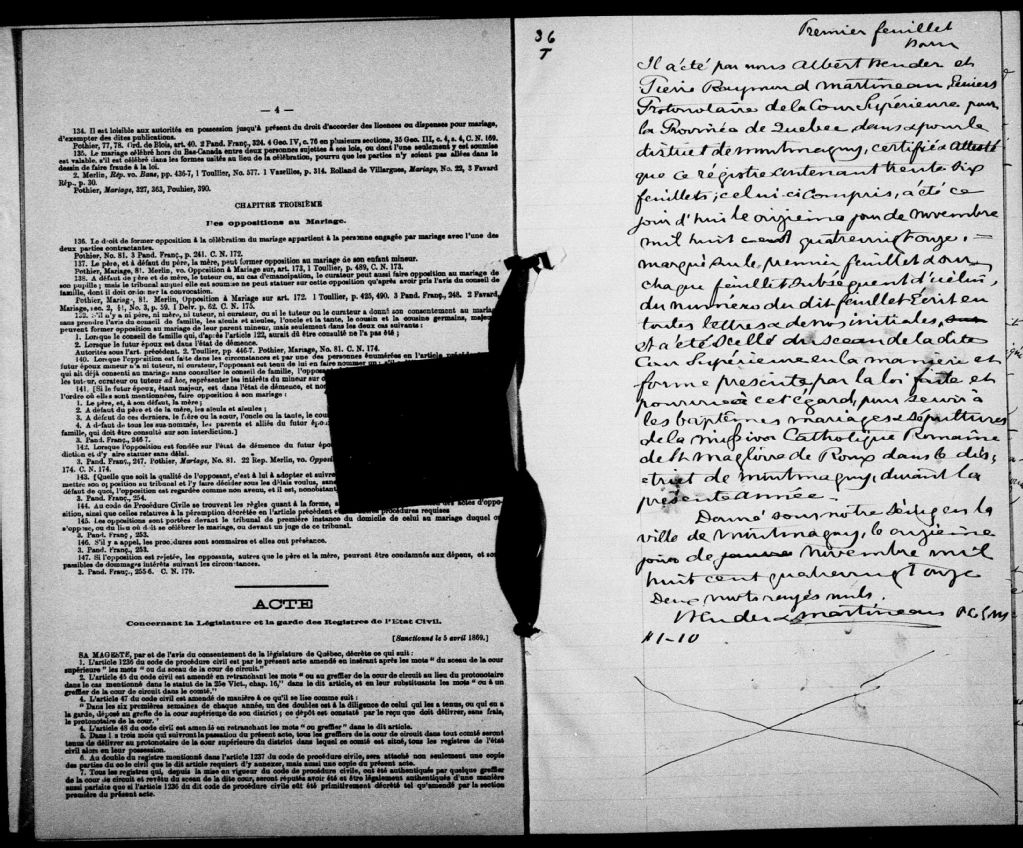 — 4 —
134. Il est loisible aux autorités en possession jusqu'à présent du droit d'accorder des licences ou dispenses pour mariage,
d'exempter des dites publications.
Pothier, 77, 78. Ord. de Blois, art. 40. 2 Pand. Franç., 324. 4 Geo. IV, c. 76 en plusieurs sections, 35 Geo. III, c. 4, s. 4, C. N. 169.
135. Le mariage célébré hors du Bas-Canada entre deux personnes sujettes à ses lois, ou dont l'une seulement y est soumise
est valable, s'il est célébré dans les formes usités au lieu de la célébration, pourvu que les parties n'y soient pas allées dans le
dessin de faire fraude à la loi.
2. Merlin, Rép. vo. Bans, pp. 436-7, 1 Toullier, No. 577. 1 Vazeilles, p. 314. Rolland de Villargues, Mariage, No. 22, 3 Favard
Rép., p. 30.
Pothier, Mariage, 327, 363, Pouhier, 390.
CHAPITRE TROISIÈME
Des oppositions au Mariage.
136. Le droit de former opposition à la célébration du mariage appartient à la personne engagée par mariage avec l'une des
deux parties contractantes.
Pothier, No. 81. 3 Pand. Franç., p. 241. C. N. 172.
137. Le père, et à défaut du père, la mère, peut former opposition au mariage de son enfant mineur.
Pothier, Mariage, 81. Merlin, vo. Opposition à Mariage sur, art. 173, 1 Toullier, p. 489, C. N. 173.
138. A défaut de père et de mère, le tuteur ou, au cas d'émancipation, le curateur peut aussi faire opposition au mariage de
son pupille; mais le tribunal auquel elle est soumise ne peut statuer sur cette opposition qu'après avoir pris l'avis du conseil de
famille, dont il doit ordonner la convocation.
Pothier, Mariage, 81. Merlin, Opposition à Mariage sur art. 172. 1 Toullier, p. 425, 490. 3 Pand. Franç., 248. 2 Favard,
Mariage, sec. 2, §1, No. 3, p. 59. 1 Delv. p. 62. C. N. 175.
139. S'il n'y a ni père, ni mère, ni tuteur, ni curateur, ou si le tuteur ou le curateur a donné son consentement au mariage
sans prendre l'avis du conseil de famille, les aïeuls et aïeules, l'oncle et la tante, le cousin et la cousine germains, majeurs
peuvent former opposition au mariage de leur parent mineur, mais seulement dans les deux cas suivants :
1. Lorsque le conseil de famille qui, d'après l'article 122, aurait dû être consulté ne l'a pas été ;
2. Lorsque le futur époux est dans l'état de démence.
Autorités sous l'art. précédent. 2. Toullier, pp. 446-7. Pothier, Mariage, No. 81. C. N. 174.
140. Lorsque l'opposition est faite dans les circonstances et par une des personnes énumérées en l'article
futur époux mineur n'a ni tuteur, ni curateur, l'opposant est tenu de lui en faire nommer un ;
qui ait déjà consenti au mariage sans consulter le conseil de famille, l'opposant
les tuteur, curateur ou tuteur ad hoc, représenter les intérêts du mineur sur
141. [Si le futur époux, étant majeur, est dans l'état de démence, et no
l'ordre où elles sont mentionnées, faire opposition à son mariage :
1. Le père, et, à son défaut, la mère ;
2. A défaut du père et de la mère, les aïeuls et aïeules ;
3. A défaut de ces derniers, le frère ou la sœur, l'oncle ou la tante, le cou
4. A défaut de tous les sus-nommés, les parents et alliés du futur épo
famille, qui doit être consulté sur son interdiction.]
3. Pand. Franç., 246 7.
142. Lorsque l'opposition est fondée sur l'état de démence du futur épo
diction et d'y faire statuer sans délai.
3. Pand. Franç., 247. Pothier, Mariage, No. 81. 22 Rep. Merlin, vo. Oppos
174. C. N. 174.
143. [Quelle que soit la qualité de l'opposant, c'est à lui à adopter et suivre
mettre son opposition au tribunal et l'y faire décider sous les délais voulus, sans
défaut de quoi, l'opposition est regardée comme non avenu, et il est, nonobstant
3. Pand. Franç., 254.
144. Au code de Procédure Civile se trouvent les règles quant à la forme, des actes d'oppo-
sition, ainsi que celles relatives à la péremption décrétée en l'article précédent procédures requises
145. Les oppositions sont portées devant le tribunal de première instance du domicile de celui au mariage duquel on
s'oppose, ou du lieu où doit se célébrer le mariage, ou devant un juge de ce tribunal.
3. Pand. Franç., 253.
146. S'il y a appel, les procédures sont sommaires et elles ont préséance.
3. Pand. Franç., 253.
147. Si l'opposition est rejetée, les opposants, autres que le père et la mère, peuvent être condamnés aux dépens, et sont
passibles de dommages intérêts suivant les circonstances.
3. Pand. Franç., 255-6. C. N. 179.
ACTE
Concernant la Législature et la garde des Registres de l'Etat Civil.
[Sanctionné le 5 avril 1869.]
SA MAGESTE, par et de l'avis du consentement de la législature de Québec, décrète ce qui suit :
1. L'article 1236 du code de procédure civil est par le présent acte amendé en insérant après les mots " du sceau de la cour
supérieure " les mots " ou du sceau de la cour de circuit."
2. L'article 45 du code civil est amendé en retranchant les mots " ou au greffier de la cour de circuit au lieu du protonotaire
dans le cas mentionné dans le statut de la 25e Vict., chap. 16," dans le dit article, et en leur substituants les mots " ou à un
greffier de la cour de circuit dans le comté."
4. L'article 47 du code civil est amendé de manière à ce qu'il se lise comme suit :
" Dans les six premières semaines de chaque année, un des doubles est à la diligence de celui qui les a tenus, ou qui en a
la garde, déposé au greffe de la cour supérieure de son district ; ce dépôt est constaté par le reçu que doit délivrer, sans frais,
le protonotaire de la cour."
4. L'article 48 du code civil est amendé en retranchant les mots " ou greffier " dans le dit article.
5. Dans les trois mois qui suivront la passation du présent acte, tous les greffiers de la cour de circuit dans tout comté seront
tenus de délivrer au protonotaire de la cour supérieure du district dans lequel ce comté est situé, tous les registres de l'état
civil alors en leur possession.
6. Au double du registre mentionné dans l'article 1237 du code de procédure civile, sera attaché non seulement une copie
des parties du code civil que le dit article requiert d'y annexer, mais aussi une copie du présent acte.
7. Tous les registres qui, depuis la mise en vigueur du code de procédure civile, ont été authentiqués par quelque greffier
de la cour de circuit et revêtu du sceau de la dite cour, seront réputés avoir été et être légalement authentiqués d'une manière
aussi parfaite que si l'article 1236 du dit code de procédure civile eût été primitivement décrété tel qu'amendé par la section
première du présent acte.
36
T
Premier feuillet
Il a été par nous Albert Bender et
Pierre Raymond Martineau, Ecuiers
Protonotaire de la Cour Supérieure pour
la Province de Quebec, dans & pour le
district de Montmagny, certifié & attesté
que ce régistre contenant trente Six
feuillets, celui-ci Compris, a été ce
jour d'hui le onzieme jour de Novembre
mil huit cent quatrevingt onze,
marqué sur le premier feuillet & sur
chaque feuillet Subséquent d'icelui,
du numéro du dit feuillet Ecrit en
toutes lettres & de nos initiales,
et a été Scellé du Sceau de la dite
Cour Supérieure en la manière et
forme prescrite, par la loi faite et
pourvue à cet Egard, pour Servir à
les baptêmes mariages & Sépultures
de la mission Catholique Romaine
de St Magloire de Roux dans le dis-
trict de Montmagny, durant la
présente année.
Donné sous notre Seing en la
ville de Montmagny, le onzième
jour de Novembre mil
huit cent quatrevingt onze
Deux mots rayés nuls.
Bender & Martineau P C S M
# 1-10